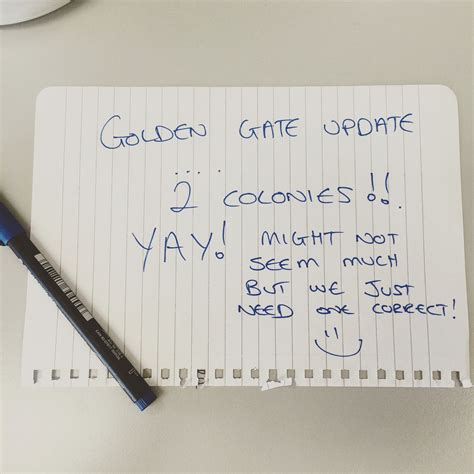 GOLDEN GATE UPDATE
....
2 COLONIES!!
YAY! MIGHT NOT
SEEM MUCH
BUT WE JUST
NEED ONE CORRECT!